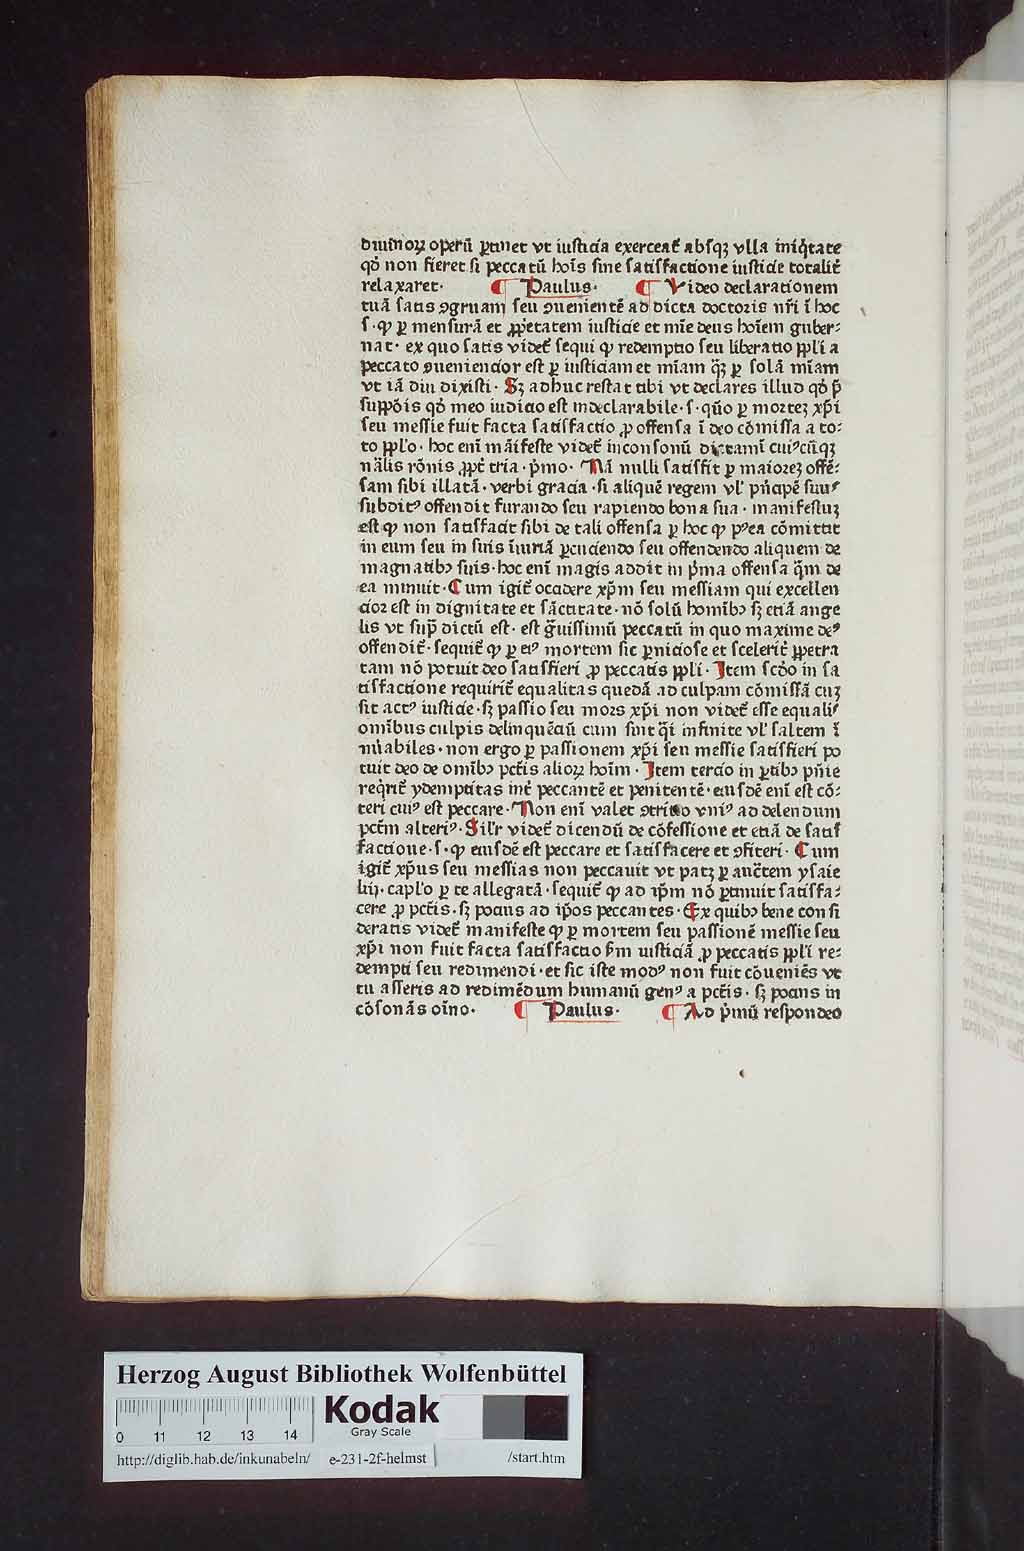 diuinoꝝ operū ꝑtinet vt iusticia exerceat᷑ absqꝫ vlla iniq̇tate
qḋ non fieret si peccatū hoīs sine satisfactione iusticie totalit᷑
relaxaret· ¶ Paulus· ¶ Video declarationem
tuā satis ꝯgruam seu ꝯuenientē ad dicta doctoris nr̄i ī hoc
s·ꝙ ꝑ mensurā et ꝓp̄etatem iusticie et mīe deus hoīem guber⸗
nat· ex quo satis videt᷑ sequi ꝙ redemptio seu liberatio ppl̄i a
peccato ꝯueniencior est ꝑ iusticiam et mīam q̄ꝫ ꝑ solā mīam
vt iā diu dixisti· Sꝫ adhuc restat tibi vt declares illud qḋ p̄
suppōis qḋ meo iudicio est indeclarabile·s·qūo ꝑ morteꝫ xp̄i
seu messie fuit facta satisfactio ꝓ offensa ī deo cōmissa a to⸗
to ppl̄o· hoc eni māifeste videt᷑ inconsonū dictamī cuiꝰcūqꝫ
nālis rōnis ꝓpt᷑ tria·pͥmo· Nā nulli satisfit ꝑ maioreꝫ offē⸗
sam sibi illatā·verbi gracia·si aliquē regem vl̓ pͥncipē suuꝰ
subditꝰ offendit furando seu rapiendo bona sua·manifestuꝫ
est ꝙ non satisfacit sibi de tali offensa ꝑ hoc ꝙ pꝰea cōmittit
in eum seu in suis īiuriā ꝑcuciendo seu offendendo aliquem de
magnatibꝫ suis·hoc enī magis addit in pͥma offensa q̄m de
ea minuit· Cum igit᷑ occidere xp̄m seu messiam qui excellen
cior est in dignitate et sāctitate·nō solū homībꝫ sꝫ etiā ange
lis vt sup̄ dictū est·est g̃uissimū peccatū in quo maxime deꝰ
offendit᷑·sequit᷑ ꝙ ꝑ eiꝰ mortem sic ꝑniciose et scelerit᷑ ꝑpetra
tam nō potuit deo satisfieri ꝓ peccatis ppl̄i· Item scd̄o in sa
tisfactione requirit᷑ equalitas quedā ad culpam cōmissā cuꝫ
sit actꝰ iusticie·sꝫ passio seu mors xp̄i non videt᷑ esse equaliꝰ
omībus culpis delinquēciū cum sint q̄i infinite vl̓ saltem ī
nūabiles·non ergo ꝑ passionem xp̄i seu messie satisfieri po
tuit deo de omībꝫ pct̄is alioꝝ hoīm· Item tercio in ꝑtibꝫ pn̄ie
req̇rit᷑ ydemptitas int᷑ peccantē et penitentē·eiusdē enī est cō⸗
teri cuiꝰ est peccare· Non enī valet ꝯtritio vniꝰ ad delendum
pct̄m alteriꝰ· Sil̓r videt᷑ dicendū de cōfessione et etiā de satis
factione·s·ꝙ eiusdē est peccare et satisfacere et ꝯfiteri· Cum
igit᷑ xp̄us seu messias non peccauit vt patꝫ ꝑ auct̄em ysaie
liij·capl̓o ꝑ te allegatā·sequit᷑ ꝙ ad ip̄m nō ꝑtinuit satisfa⸗
cere ꝓ pct̄is·sꝫ pocius ad ip̄os peccantes· Ex quibꝫ bene consi
deratis videt᷑ manifeste ꝙ ꝑ mortem seu passionē messie seu
xp̄i non fuit facta satisfactio ẜm iusticiā ꝓ peccatis ppl̄i re⸗
dempti seu redimendi·et sic iste modꝰ non fuit cōueniēs vt
tu asseris ad redimēdum humanū genꝰ a pct̄is· sꝫ pocius in
cōsonās oīno· ¶ Paulus· ¶ Ad pͥmū respondeo
Herzog August Bibliothek Wolfenbüttel
Kodak
Gray Scale
0 11 12 13 14
http://diglib.hab.de/inkunabeln/ e-231-2f-helmst /start.htm